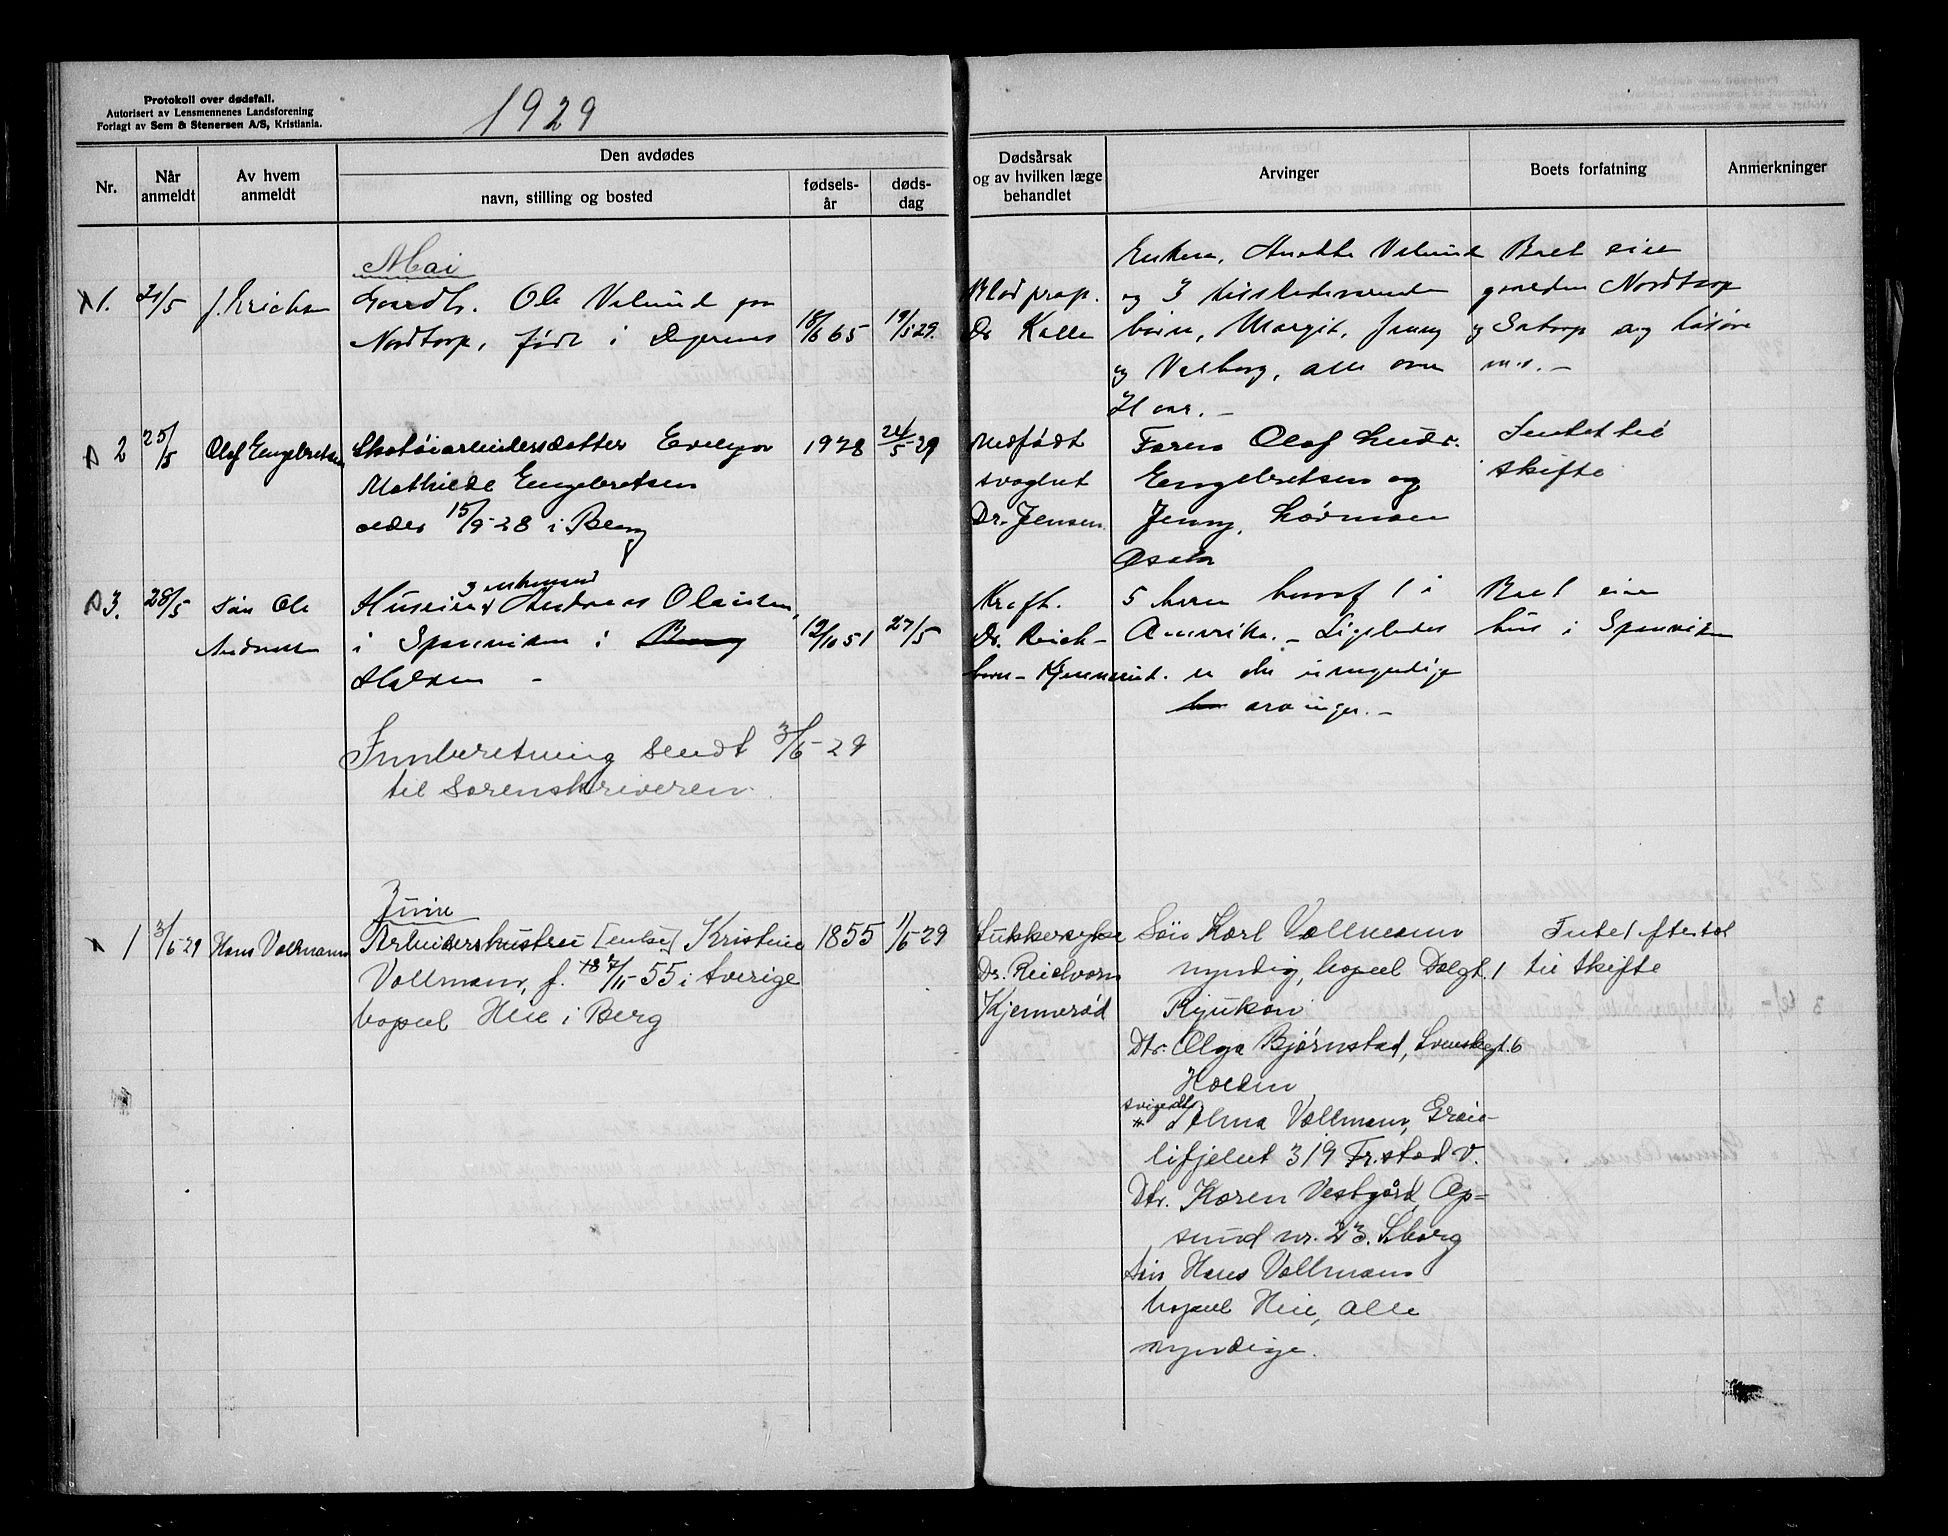 Protokoll over dødsfall.
Autorisert av Lensmennenes Landsforening
Forlagt av Sem & Stenersen A/S, Kristiania.
1929
Nr.
Når anmeldt
Av hvem anmeldt
Den avdødes
navn, stilling og bosted
fødsels-år
døds-dag
Dødsårsak og av hvilken læge behandlet
Arvinger
Boets forfatning
Anmerkninger
Mai
1. 21/5
Gaardbr. Ole Velund paa
Nordtorp, født i Degernes
18/6 65
19/5 29.
Blodprop.
Dr Kalle
Enken, Anette Velund
og 3 tilstedeværende
børn, Margit, Jenny
og Valborg, alle over
21 aar. –
Boet eier
gaarden Nordtorp
og Satorp og løsøre
m.v. –
2 25/5 Olaf Engebretsen
Skotøiarbeidersdatter Evelyn
Mathilde Engebretsen
15/9-28 i Berg
1928
24/5 29
Medfødt
svaghet
Dr. Jensen.
Faren Olaf Ludv.
Engebretsen og
Jenny,
Intet til
skifte
3. 28/5 Søn Ole
Andreassen
Huseier Andreas Olausen,
i Sponviken i Berg
Halden –
12/10 51
27/5
Kreft.
Dr. Reich-
born-Kjennerud.
5 barn hvoraf 1 i
Amerika. – Ligeledes
er der umyndige
arvinger. –
Boet eier
hus i Sponviken
Innberetning sendt 3/6-29
til sorenskriveren.
Juni
1 3/6-29 Hans Vollmann
Arbeiderhustru [enke] Kristine
Vollmann, f. 7/11-55 i Sverige
bopæl Hee i Berg
1855
1/6 29
Sukkersyke
Dr. Reichborn
Kjennerød
Søn Karl Vollmann
myndig, bopæl Dalgt. 1
Rjukan
Dtr. Olga Bjørnstad, Svenskegt. 6
Halden
svigerdtr.
Alma Vollmann, Graa-
lifjellet 319 Fr.stad V.
Dtr. Karen Vestgård, Op-
sund nr. 23. S.borg
Søn Hans Vollmann
bopæl Hee, alle
myndige.
Intet efterlat
til skifte